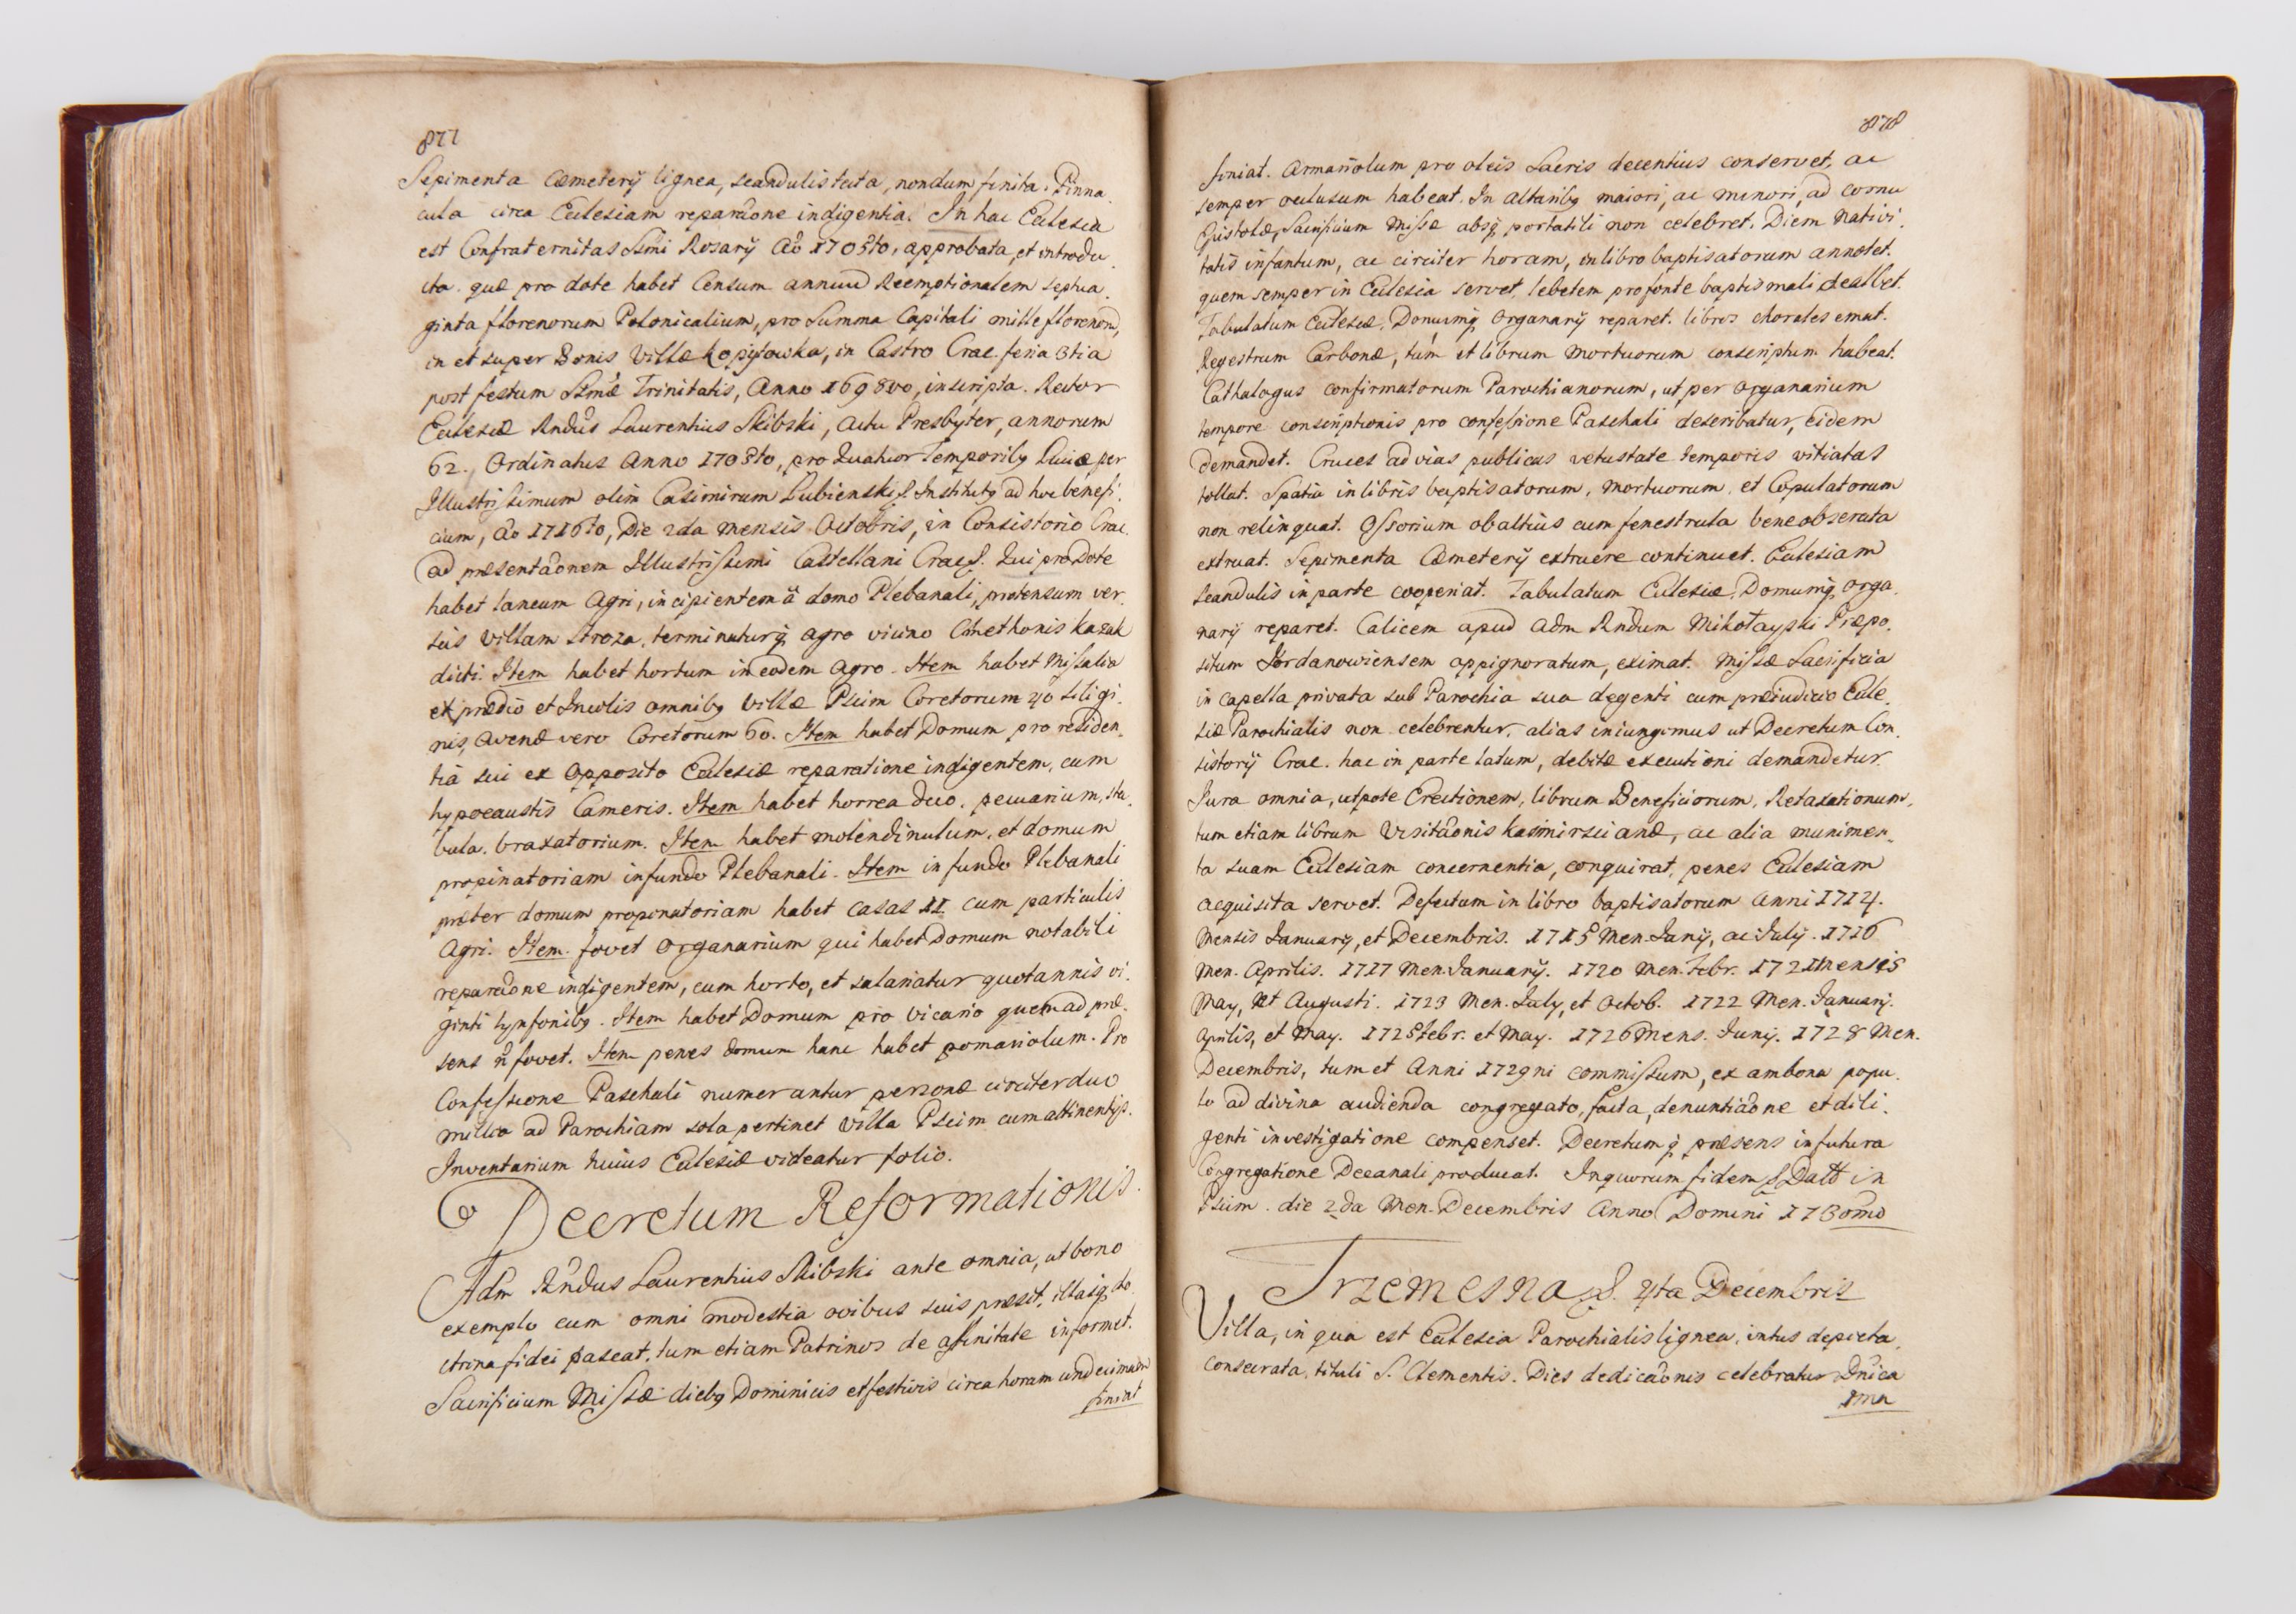 877
Sepimenta Cæmeterÿ lignea, scandulis tecta, nondum finita. Pinna
cula circa Ecclesiam reparãone indigentia. In hac Ecclesia
est Confraternitas Ssmi Rosarÿ Aõ 1705to, approbata, et introdu
cta. quæ pro dote habet Censum annuũ Reemptionalem septua
ginta florenorum Polonicalium, pro Summa Capitali mille florenorũ,
in et super Bonis Villæ Kopytowka, in Castro Crac. feria 3tia
post festum Ssmæ Trinitatis, Anno 1698vo, inscripta. Rector
Ecclesiæ Rndus Laurentius Skibski, actu Presbyter, annorum
62. Ordinatus Anno 1705to, pro Quatuor Temporibq Luciæ per
Illustrissimum olim Casimirum Lubienski. Institutq ad hoc benefi
cium, Aõ 1716to, Die 2da mensis Octobris, in Consistorio Crac.
ad præsentãonem Illustrissimi Castellani Crac. Qui pro Dote
habet laneum Agri, incipientem à domo Plebanali, protensum ver
sus villam Stroza, terminaturq agro vicino Cmethonis Kazak
dicti. Item habet hortum in eodem agro. Item habet Missalia
ex prædio et Incolis omnibq Villæ Pcim Coretorum 40 siligi
nis, avenæ vero Coretorum 60. Item habet Domum pro residen
tia sui ex opposito Ecclesiæ reparatione indigentem, cum
hypocaustis Cameris. Item habet horrea duo, pecuarium, sta
bula, braxatorium. Item habet molendinulum, et domum
propinatoriam in fundo Plebanali. Item in fundo Plebanali
præter domum propinatoriam habet casas 11 cum particulis
Agri. Item fovet organarium qui habet Domum notabili
reparãone indigentem, cum horto, et salariatur quotannis vi
ginti tynfonibq. Item habet Domum pro vicario quem ad præ
sens ñ fovet. Item penes domum hanc habet pomariolum. Pro
Confessione Paschali numerantur personæ circiter duo
millia ad Parochiam sola pertinet villa Pcim cum attinentijs.
Inventarium huius Ecclesiæ videatur folio.
Decretum Reformationis.
Adm Rndus Laurentius Skibski ante omnia, ut bono
exemplo cum omni modestia ovibus suis præsit, illasq do
ctrina fidei pascat, tum etiam Patrinos de affinitate informet.
Sacrificium Missæ diebq Dominicis et festivis circa horam undecimam
finiat
878
finiat. Armariolum pro oleis Sacris decentius conservet, ac
semper occlusum habeat. In altaribq maiori, ac minori, ad cornu
Epistolæ, Sacrificium Missæ absq portatili non celebret. Diem nativi
tatis infantum, ac circiter horam, in libro baptisatorum annotet.
quem semper in Ecclesia servet, lebetem pro fonte baptismali dealbet.
Tabulatum Ecclesiæ, Domumq Organarÿ reparet. libros chorales emat.
Regestrum Carbonæ, tum et librum mortuorum conscriptum habeat.
Cathalogus confirmatorum Parochianorum, ut per organarium
tempore conscriptionis pro confessione Paschali describatur, eidem
demandet. Cruces ad vias publicas vetustate temporis vitiatas
tollat. Spatia in libris baptisatorum, mortuorum, et Copulatorum
non relinquat. Ossorium ob altius cum fenestrula bene obserata
extruat. Sepimenta Cæmeterÿ extruere continuet. Ecclesiam
scandulis in parte cooperiat. Tabulatum Ecclesiæ, Domumq Orga
narÿ reparet. Calicem apud Adm Rndum Mikołayski Præpo
situm Jordanowiensem appignoratum, eximat. Missæ Sacrificia
in capella privata sub Parochia sua degenti cum præiudicio Eccle
siæ Parochialis non celebrentur, alias iniungimus ut Decretum Con
sistorÿ Crac. hac in parte latum, debitæ executioni demandetur.
Jura omnia, utpote Erectionem, librum Beneficiorum, Retaxationum,
tum etiam librum Visitãonis Kazimirscianæ, ac alia munimen
ta suam Ecclesiam concernentia, conquirat, penes Ecclesiam
acquisita servet. Defectum in libro baptisatorum anni 1714.
mensis Januarÿ, et Decembris. 1715 Men. Junÿ, ac Julÿ. 1716
Men. Aprilis. 1717 Men. Januarÿ. 1720 Men. Febr. 1721 mensis
May, et Augusti. 1723 Men. July, et Octob. 1722 Men. Januarÿ.
Aprilis, et May. 1725 Febr. et May. 1726 Mens. Junÿ. 1728 Men.
Decembris, tum et Anni 1729ni commissum, ex ambona popu
lo ad divina audienda congregato, facta, denuntiãone et dili
genti investigatione compenset. Decretumq præsens in futura
Congregatione Decanali producat. In quorum fidem Datt in
Pcim. die 2da Men. Decembris Anno Domini 1730mo
Trzemesna. 4ta Decembris
Villa, in qua est Ecclesia Parochialis lignea, intus depicta,
consecrata, tituli S. Clementis. Dies dedicãonis celebratur Dnica
1ma